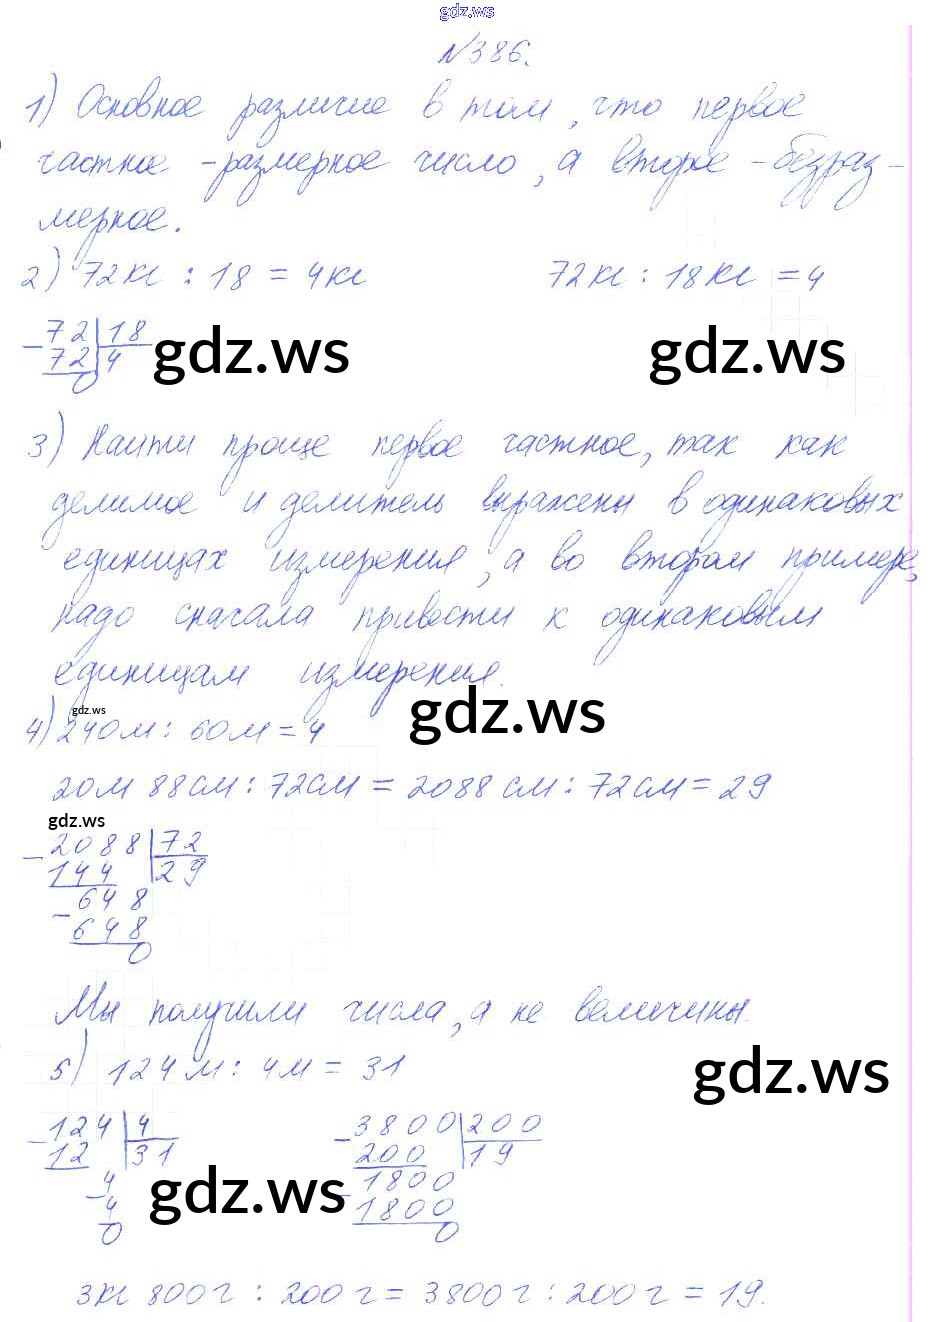 gdz.ws
№386.
1) Основное различие в том, что первое
частное - размерное число, а второе - безраз-
мерное.
2) 72кг : 18 = 4кг 72кг : 18кг = 4
- 72 | 18
72 | 4
0
gdz.ws gdz.ws
3) Найти проще первое частное, так как
делимое и делитель выражены в одинаковых
единицах измерения, а во втором примере,
надо сначала привести к одинаковым
единицам измерения.
gdz.ws
gdz.ws
4) 240м : 60м = 4
20м 88см : 72см = 2088см : 72см = 29
gdz.ws
- 2088 | 72
144 | 29
- 648
648
0
Мы получили числа, а не величины.
5) 124м : 4м = 31
gdz.ws
- 124 | 4 - 3800 | 200
12 | 31 200 | 19
- 4 - 1800
4 1800
0 0
gdz.ws
3кг 800г : 200г = 3800г : 200г = 19.